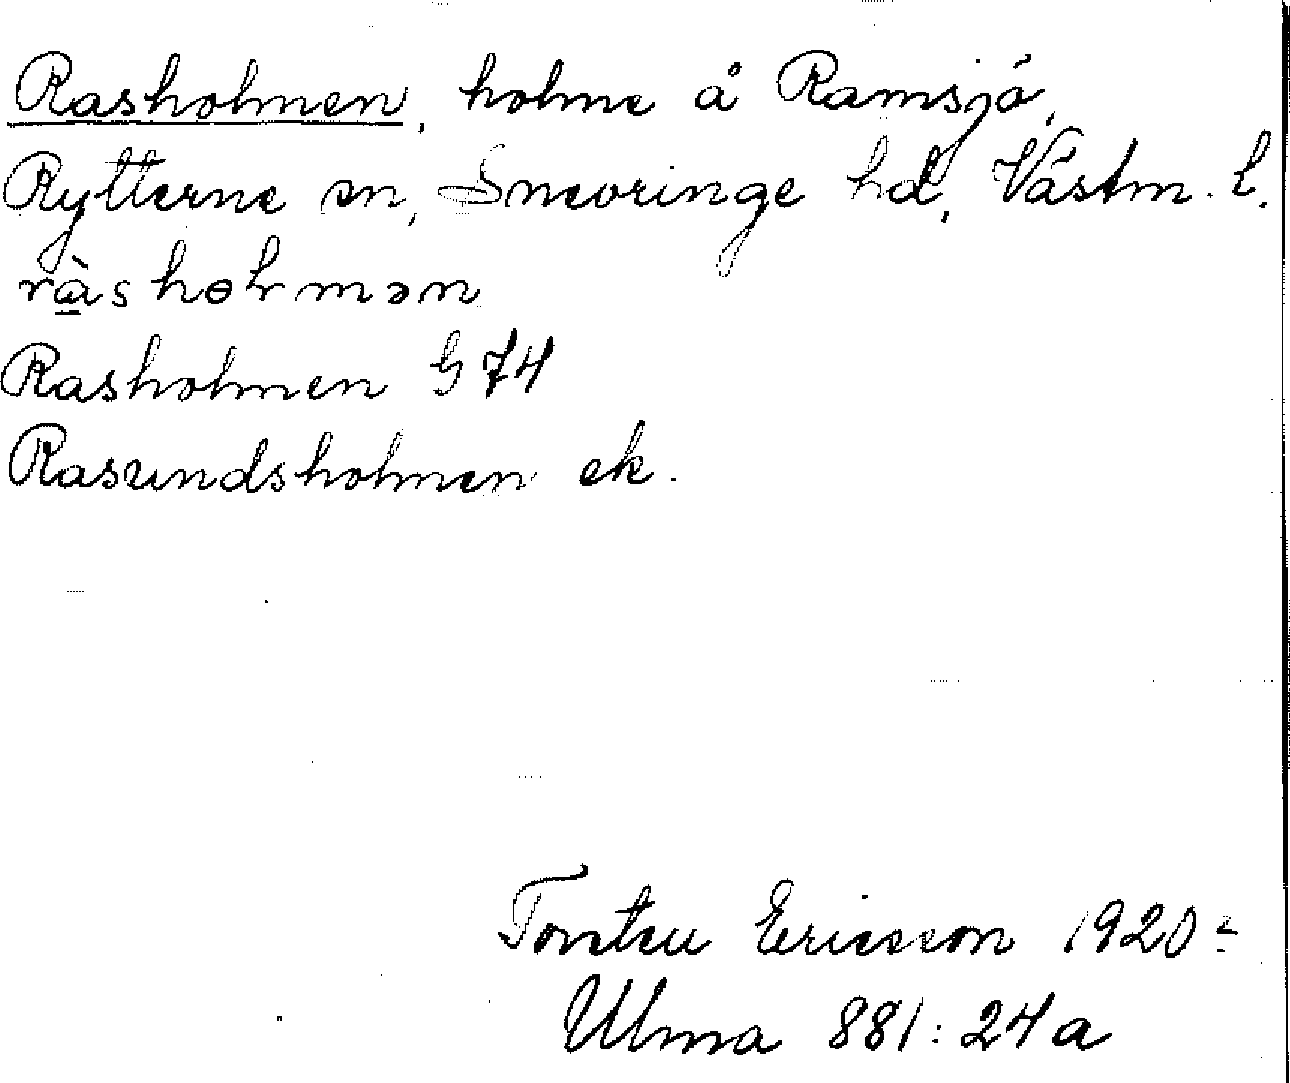 Rasholmen, holme å Ramsjö,
Rytterne sn, Snevringe hd, Västm. l.
ràshɵlmən
Rasholmen G 74
Rasundsholmen ek.
Torsten Ericsson 1920
Ulma 881:24a